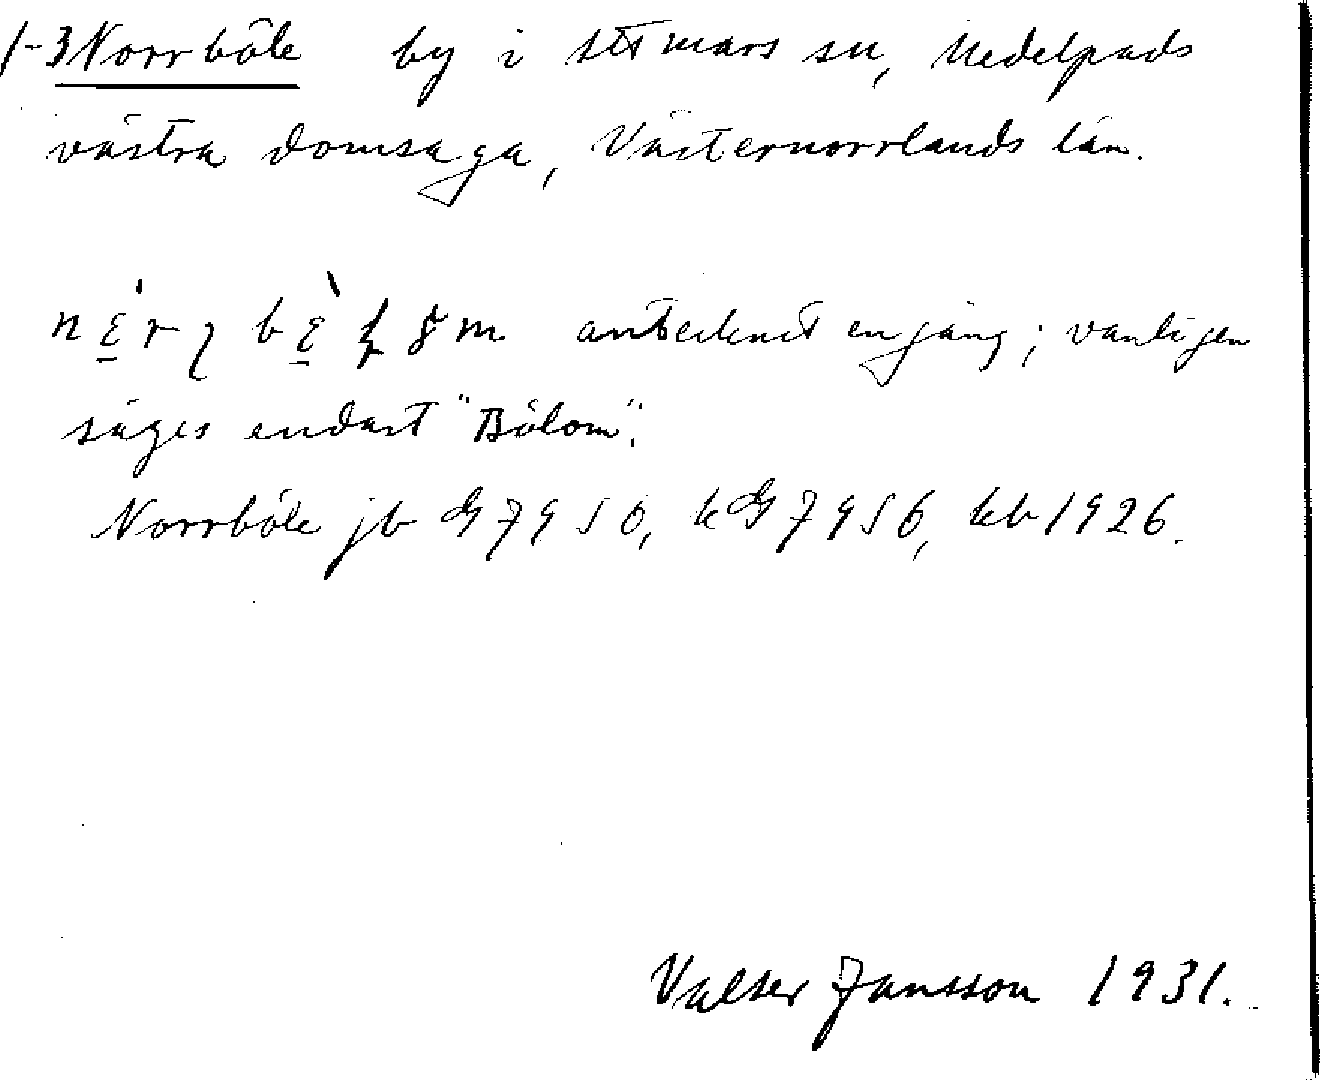 1-3 Norrböle by i Attmars sn, Medelpads
västra domsaga, Västernorrlands län.
antecknat en gång; vanligen
säges endast "Bölom".
Norrböle jb G7950, kG7956, kb 1926.
Valter Jansson 1931.